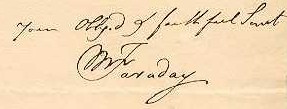 Your Obliged & faithful Servt
M Faraday